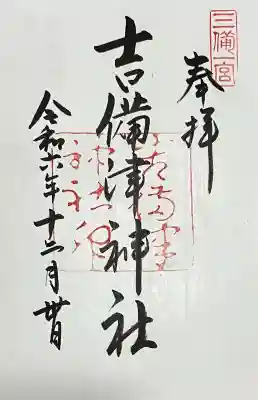 三備一宮
奉拝
吉備津神社
令和六年十二月卅日